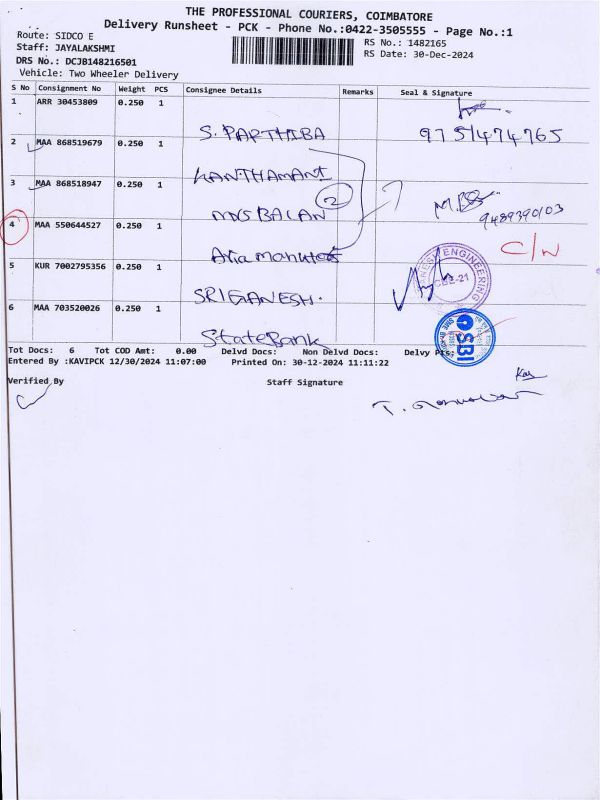 THE PROFESSIONAL COURIERS, COIMBATORE
Delivery Runsheet - PCK - Phone No.:0422-3505555 - Page No.:1
Route: SIDCO E
RS No.: 1482165
Staff: JAYALAKSHMI
RS Date: 30-Dec-2024
DRS No.: DCJB148216501
Vehicle: Two Wheeler Delivery
S No Consignment No Weight PCS Consignee Details Remarks Seal & Signature
1 ARR 30453809 0.250 1
S. PARTHIBA 9751474765
2 MAA 868519679 0.250 1
KANTHAMANI
3 MAA 868518947 0.250 1
2
MNS BALAN 9489390103
4 MAA 550644527 0.250 1
C/N
5 KUR 7002795356 0.250 1
ENGINEERING
CBE-21
SRI GANESH.
6 MAA 703520026 0.250 1
State Bank
SBI
Tot Docs: 6 Tot COD Amt: 0.00 Delvd Docs: Non Delvd Docs: Delvy Pts:
Entered By :KAVIPCK 12/30/2024 11:07:00 Printed On: 30-12-2024 11:11:22
Verified By Staff Signature